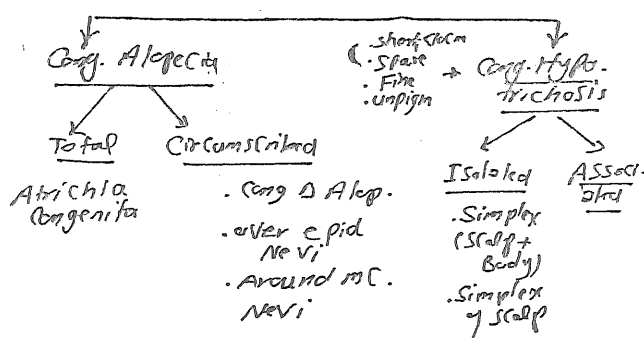 Cong. Alopecia
Total
Atrichia
Congenita
Circumscribed
. Cong Δ Alop.
. over epid
Nevi
. Around mc.
Nevi
. short
. sparse
. Fine
. unpigm
Cong. Hypo.
trichosis
Isolated
. Simplex
(Scalp +
Body)
. Simplex
of scalp
Associ.
ated